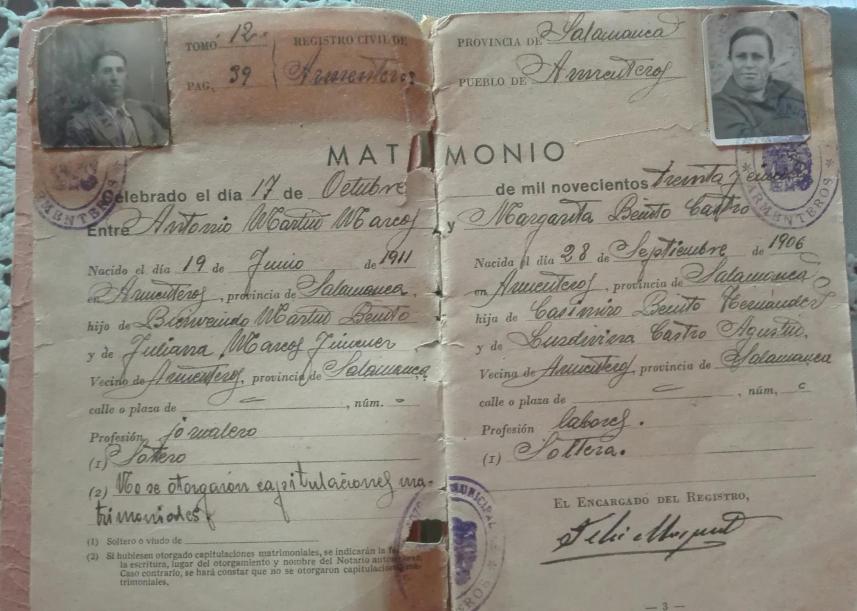 TOMÓ 12
REGISTRO CIVIL DE
PAG. 39
Armenteros
PROVINCIA DE Salamanca
PUEBLO DE Armenteros
MATRIMONIO
Celebrado el día 17 de Octubre de mil novecientos treinta y
Entre Antonio Martín Marcos y Margarita Benito Castro
Nacido el día 19 de Junio de 1911
en Armenteros, provincia de Salamanca,
hijo de Bienvenido Martín Benito
y de Juliana Marcos Jimenez
Vecino de Armenteros, provincia de Salamanca
calle o plaza de , núm.
Profesión jornalero
(1) Soltero
(2) No se otorgarón capitulaciones ma-
trimoniales
(1) Soltero o viudo de
(2) Si hubiesen otorgado capitulaciones matrimoniales, se indicarán la
la escritura, lugar del otorgamiento y nombre del Notario
Caso contrario, se hará constar que no se otorgaron
trimoniales.
Nacida el día 28 de Septiembre de 1906
en Armenteros, provincia de Salamanca
hija de Casimiro Benito Hernández
y de Ludivina Castro Agustín,
Vecina de Armenteros, provincia de Salamanca
calle o plaza de , núm.
Profesión labores.
(1) Soltera.
EL ENCARGADO DEL REGISTRO,
— 3 —
ARMENTEROS
ARMENTEROS
MUNICIPAL
ARMENTEROS